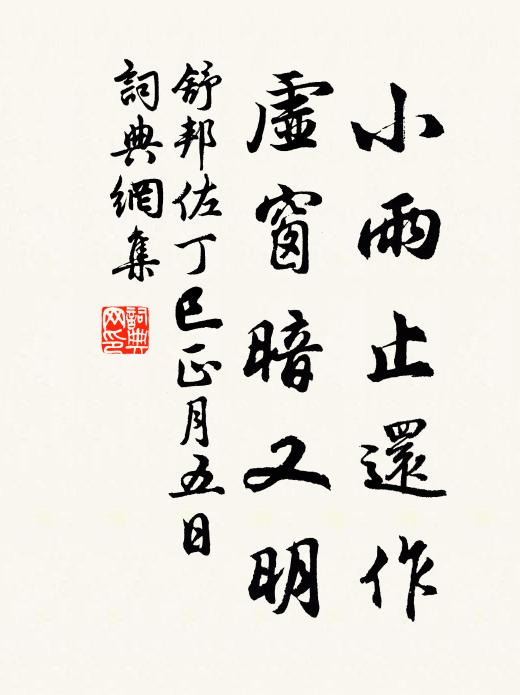 小雨止還作
虛窗暗又明
舒邦佐丁巳正月五日
詞典網集
詞典网印